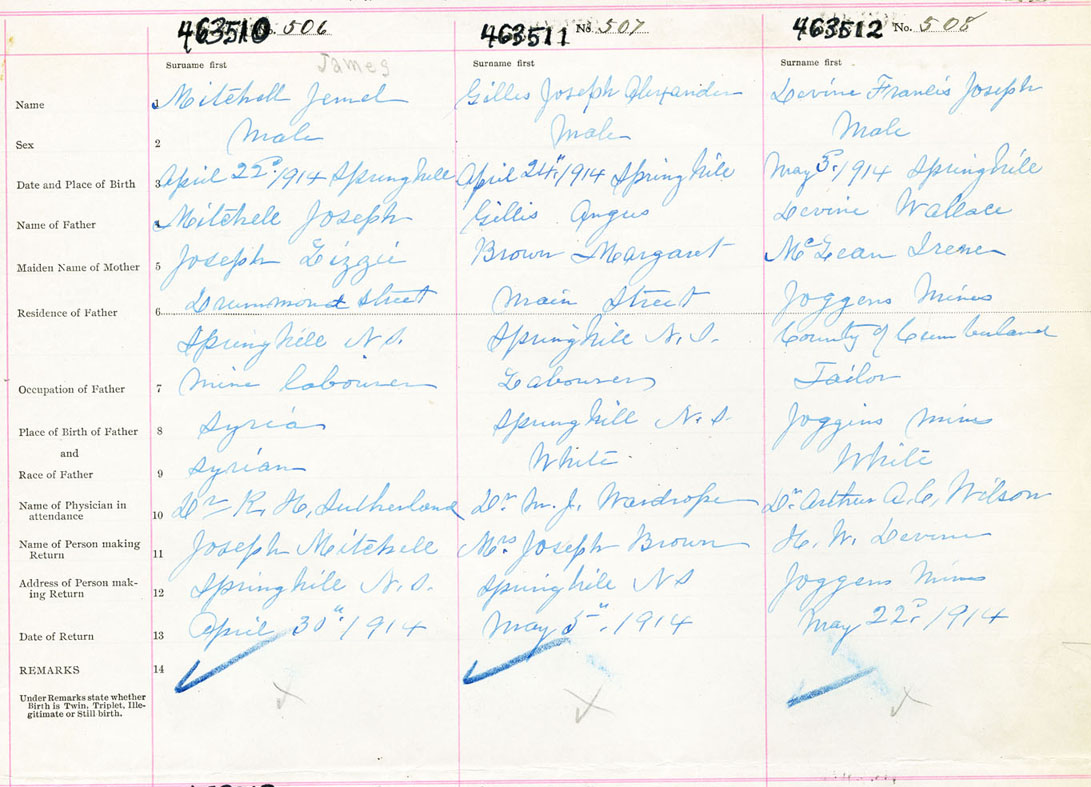 463510 No. 506 463511 No. 507 463512 No. 508
Surname first James Surname first Surname first
Name 1 Mitchell Jemel Gillis Joseph Alexander Devine Francis Joseph
Sex 2 Male Male Male
Date and Place of Birth 3 April 22d. 1914 Springhill April 24th. 1914 Springhill May 3d. 1914 Springhill
Name of Father 4 Mitchell Joseph Gillis Angus Devine Wallace
Maiden Name of Mother 5 Joseph Lizzie Brown Margaret McLean Irene
Residence of Father 6 Drummond Street Main Street Joggens Mines
Springhill N.S. Springhill N.S. County of Cumberland
Occupation of Father 7 Mine labourer Labourer Tailor
Place of Birth of Father 8 Syria Springhill N.S Joggins Mines
and
Race of Father 9 Syrian White White
Name of Physician in attendance 10 Dr R. H. Sutherland Dr M. J. Wardrope Dr. Arthur A. C. Wilson
Name of Person making Return 11 Joseph Mitchell Mrs Joseph Brown H. W. Devine
Address of Person mak-
ing Return 12 Springhill N.S. Springhill NS Joggens Mines
Date of Return 13 April 30th. 1914 May 5th. 1914 May 22d. 1914
REMARKS 14
Under Remarks state whether
Birth is Twin, Triplet, Ille-
gitimate or Still birth.